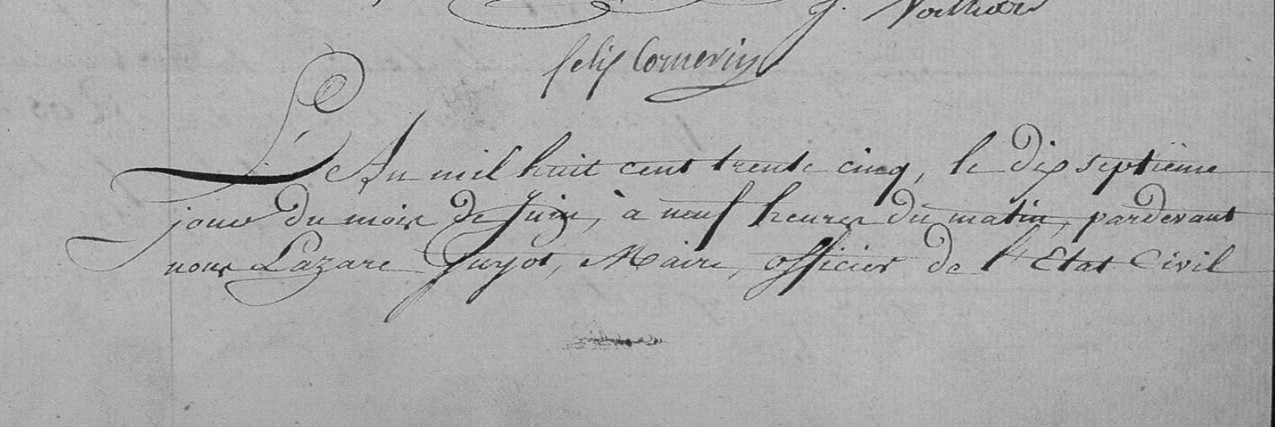 felix Cornevin
L'An mil huit cent trente cinq, le dix septième
jour du mois de Juin, à neuf heures du matin, pardevant
nous Lazare Guyot, Maire, officier de l'Etat Civil